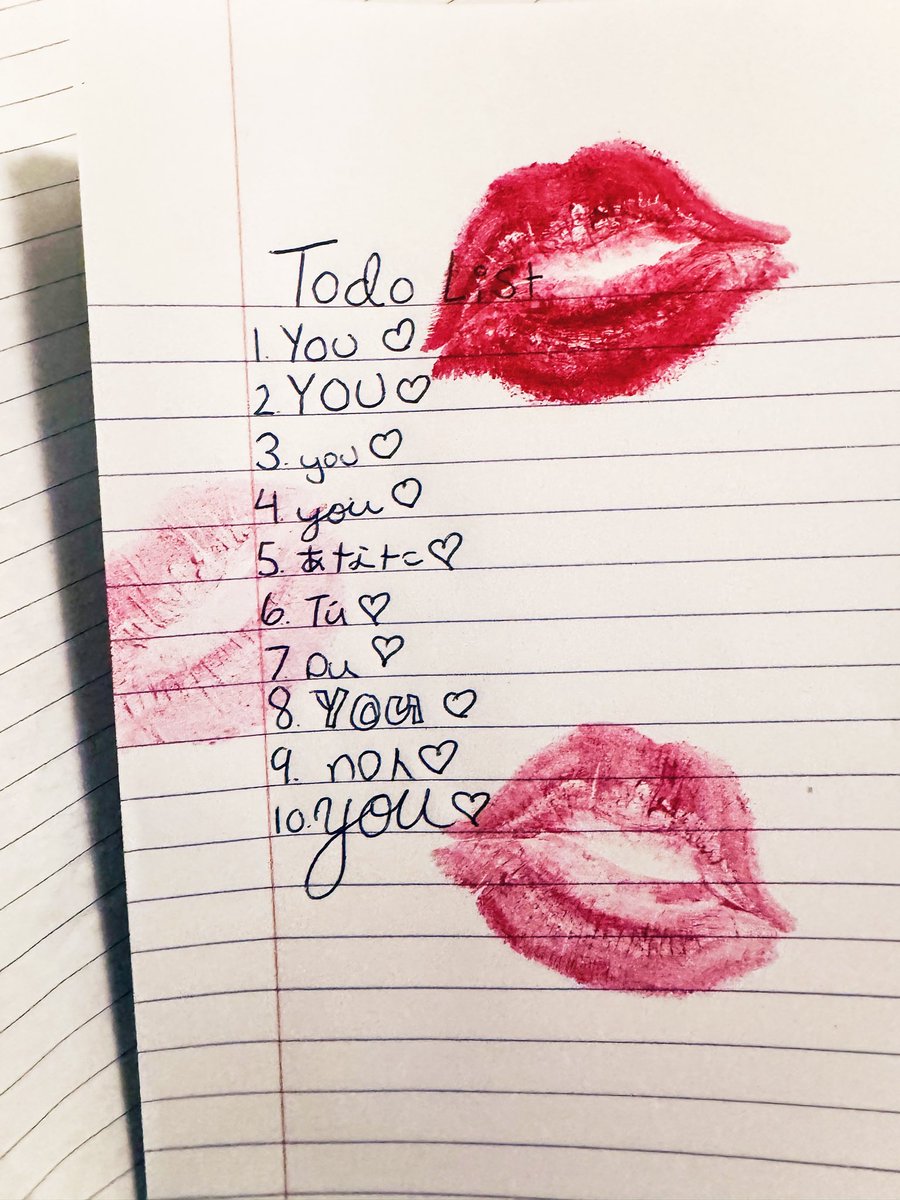 Todo List
1. You ♡
2. YOU ♡
3. you ♡
4. you ♡
5. あなた ♡
6. Tú ♡
7 Du ♡
8. You ♡
9. ♡
10. you ♡